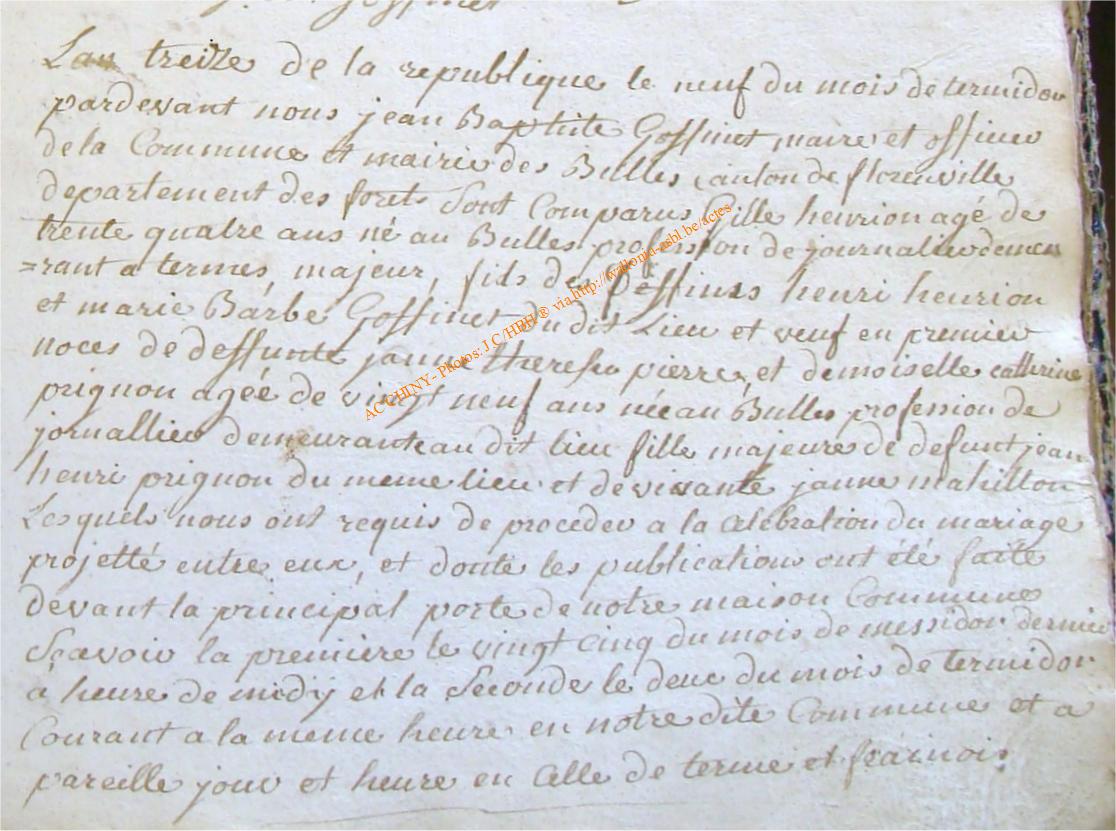 Goffinet
Lan treize de la republique le neuf du mois de termidor
pardevant nous jean Baptiste Goffinet maire et officier
de la Commune et mairie des Bulles canton de florenville
departement des forets Sont Comparus Gille henrion agé de
trente quatre ans né au Bulles profession de journalier demeu
=rant a termes, majeur, fils de deffunts henri henrion
et marie Barbe Goffinet du dit Lieu et veuf en premier
noces de deffunte janne therese pierre, et demoiselle catherine
prignon agée de vingt neuf ans nee au Bulles profession de
jornallier demeurante au dit lieu fille majeure de defunt jean
henri prignon du meme lieu et de vivante janne mahillon
Lesquels nous ont requis de proceder a la celebration du mariage
projetté entre eux, et donte les publications ont été faite
devant la principal porte de notre maison Commune
Sçavoir la premiere le vingt cinq du mois de messidor dernier
a heure de midy et la Seconde le deux du mois de termidor
Courant a la meme heure en notre dite Commune et a
pareille jour et heure en Celle de terme et frainois
AC CHINY - Photos: J C /HBH ® via http://wallonia-asbl.be/actes